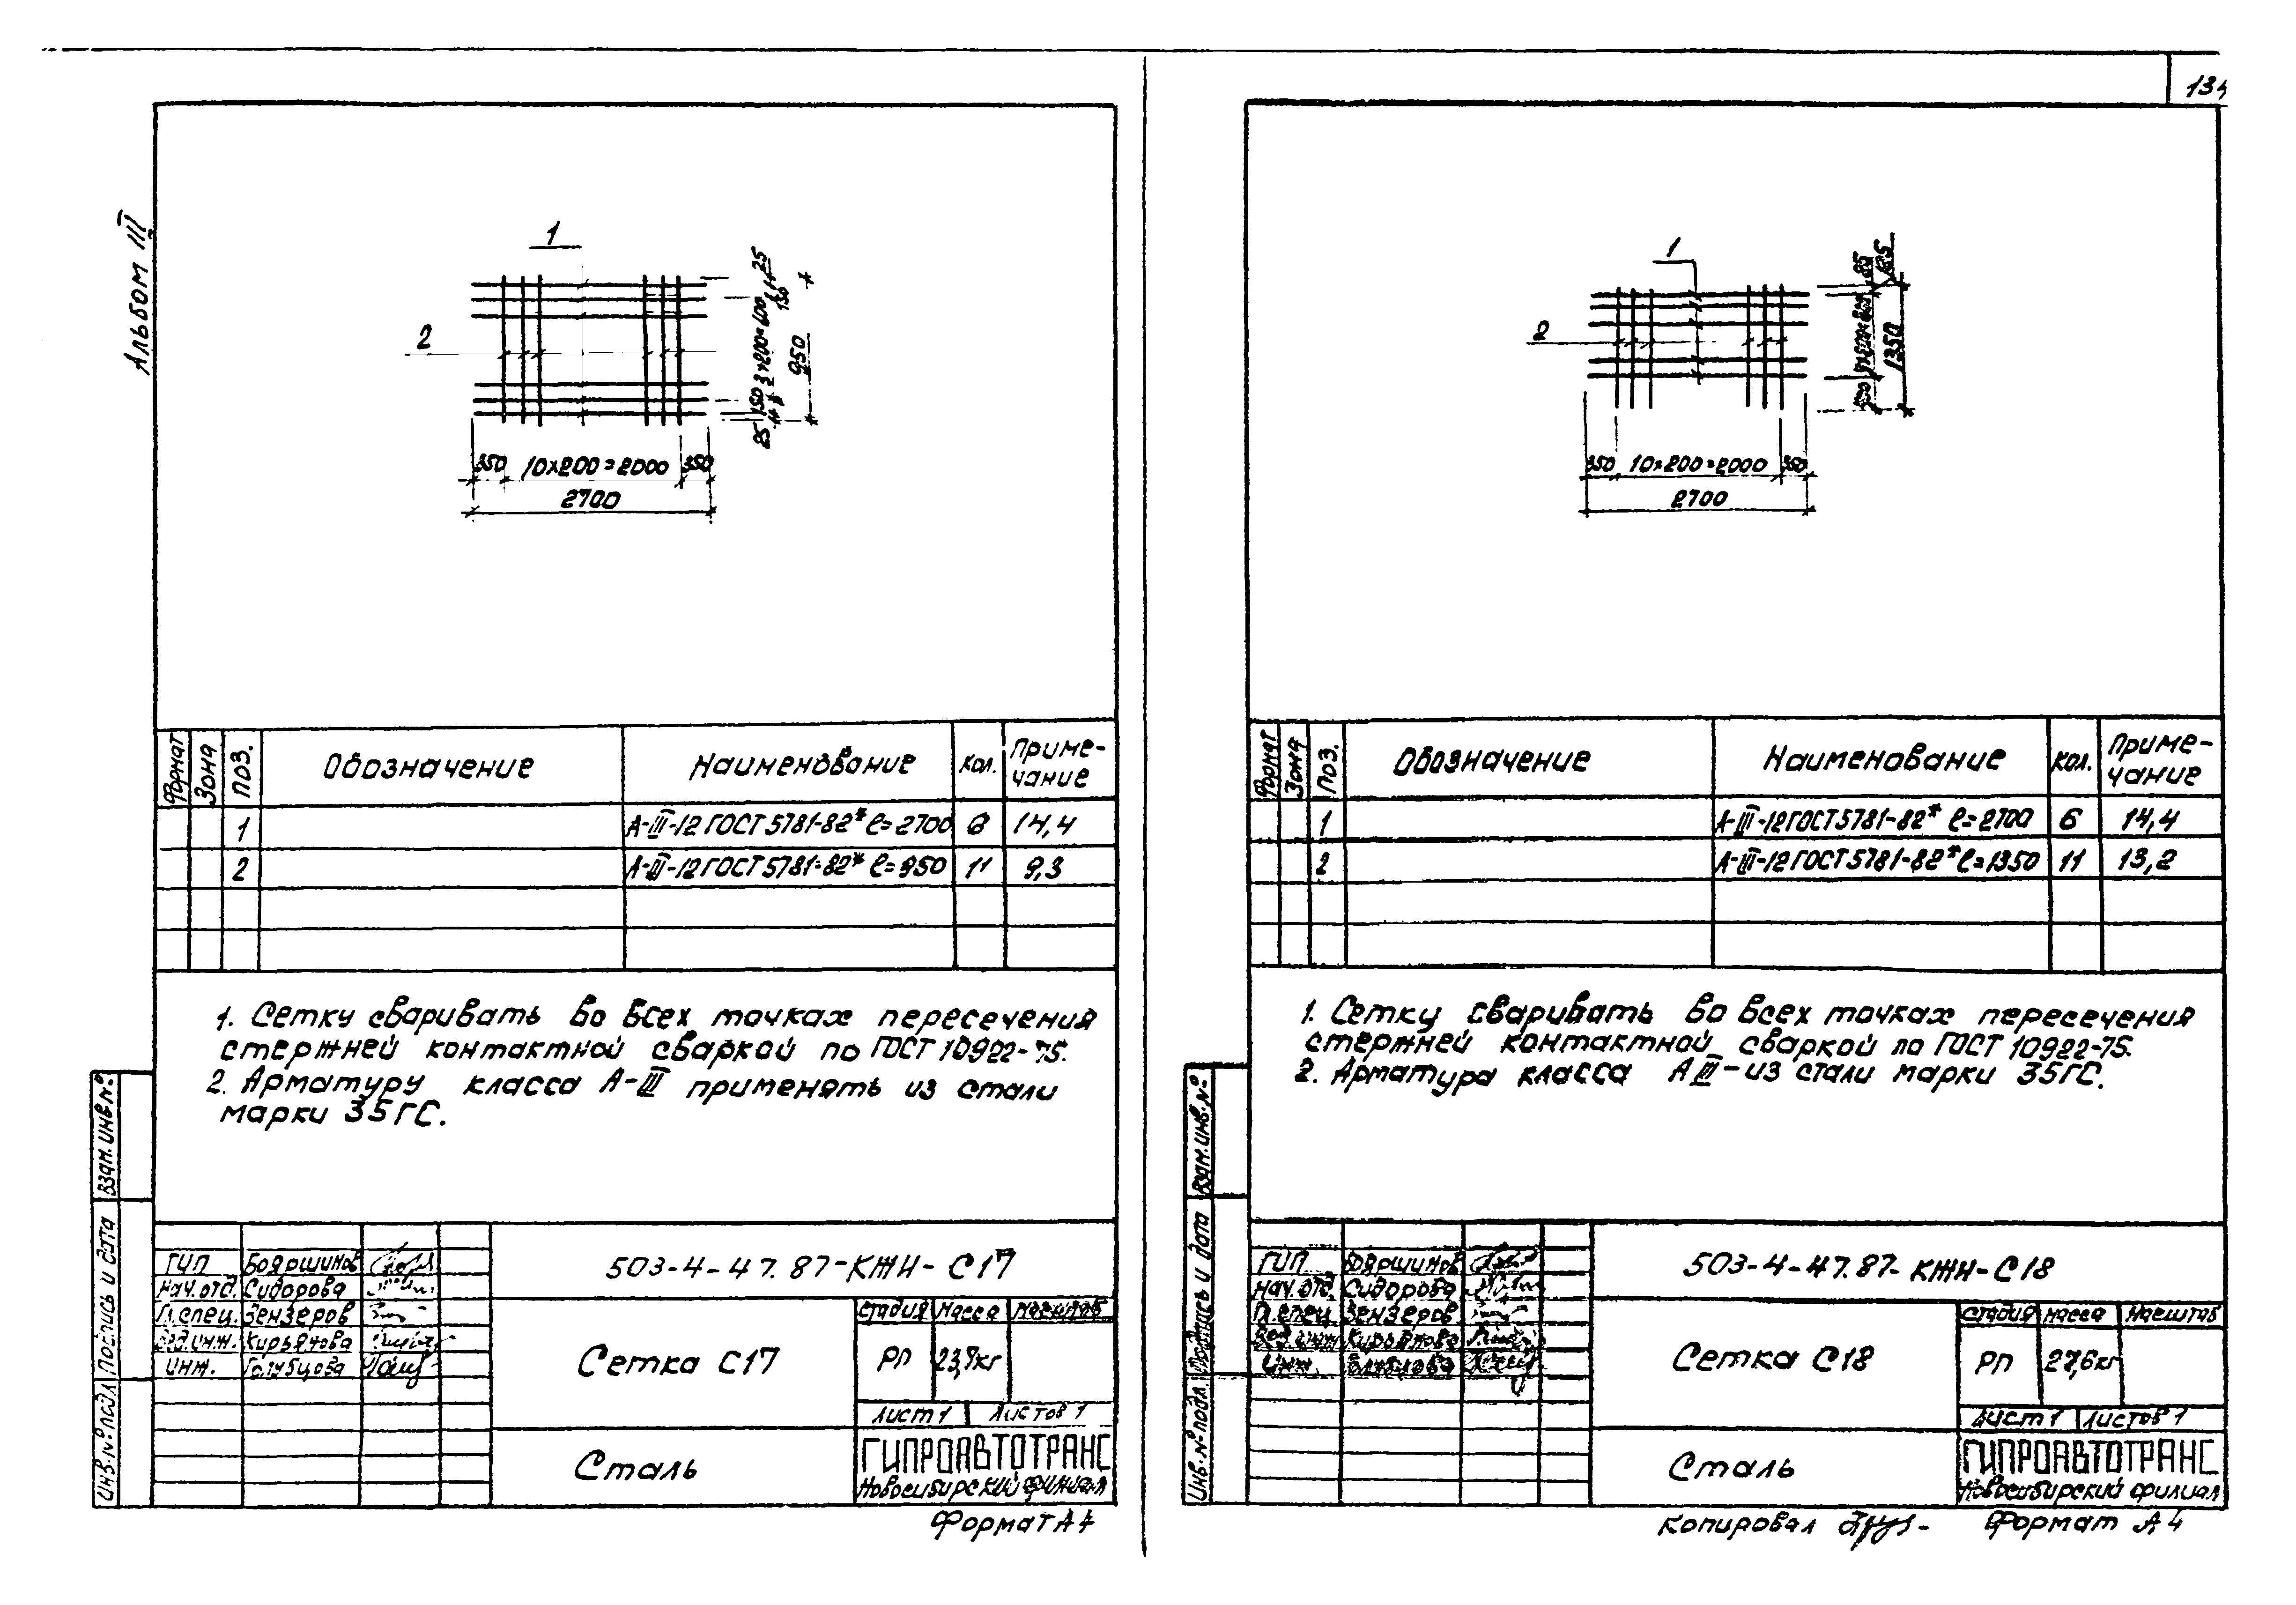 Альбом III
1
2
25
150
3×200=600
150
25
950
350 10×200=2000 350
2700
Формат Зона Поз. Обозначение Наименование Кол. Приме-
чание
1 А-III-12 ГОСТ 5781-82* ℓ=2700 6 14,4
2 А-III-12 ГОСТ 5781-82* ℓ=950 11 9,3
1. Сетку сваривать во всех точках пересечения
стержней контактной сваркой по ГОСТ 10922-75.
2. Арматуру класса А-III применять из стали
марки 35ГС.
Взам. инв. №
Подпись и дата
Инв. № подл.
ГИП Бояршинов
Нач. отд. Сидорова
Гл. спец. Зензеров
Вед. инж. Кирьянова
Инж. Голубцова
503-4-47.87-КЖИ-С17
Сетка С17
Стадия Масса Масштаб
РП 23,7кг
Лист 1 Листов 1
Сталь
ГИПРОАВТОТРАНС
Новосибирский филиал
Формат А4
134
1
2
25
1350
350 10×200=2000 350
2700
Формат Зона Поз. Обозначение Наименование Кол. Приме-
чание
1 А-III-12 ГОСТ 5781-82* ℓ=2700 6 14,4
2 А-III-12 ГОСТ 5781-82* ℓ=1350 11 13,2
1. Сетку сваривать во всех точках пересечения
стержней контактной сваркой по ГОСТ 10922-75.
2. Арматура класса А III-из стали марки 35ГС.
Взам. инв. №
Подпись и дата
Инв. № подл.
ГИП Бояршинов
Нач. отд. Сидорова
Гл. спец. Зензеров
Вед. инж. Кирьянова
Инж. Голубцова
503-4-47.87-КЖИ-С18
Сетка С18
Стадия Масса Масштаб
РП 27,6кг
Лист 1 Листов 1
Сталь
ГИПРОАВТОТРАНС
Новосибирский филиал
Копировал Формат А4